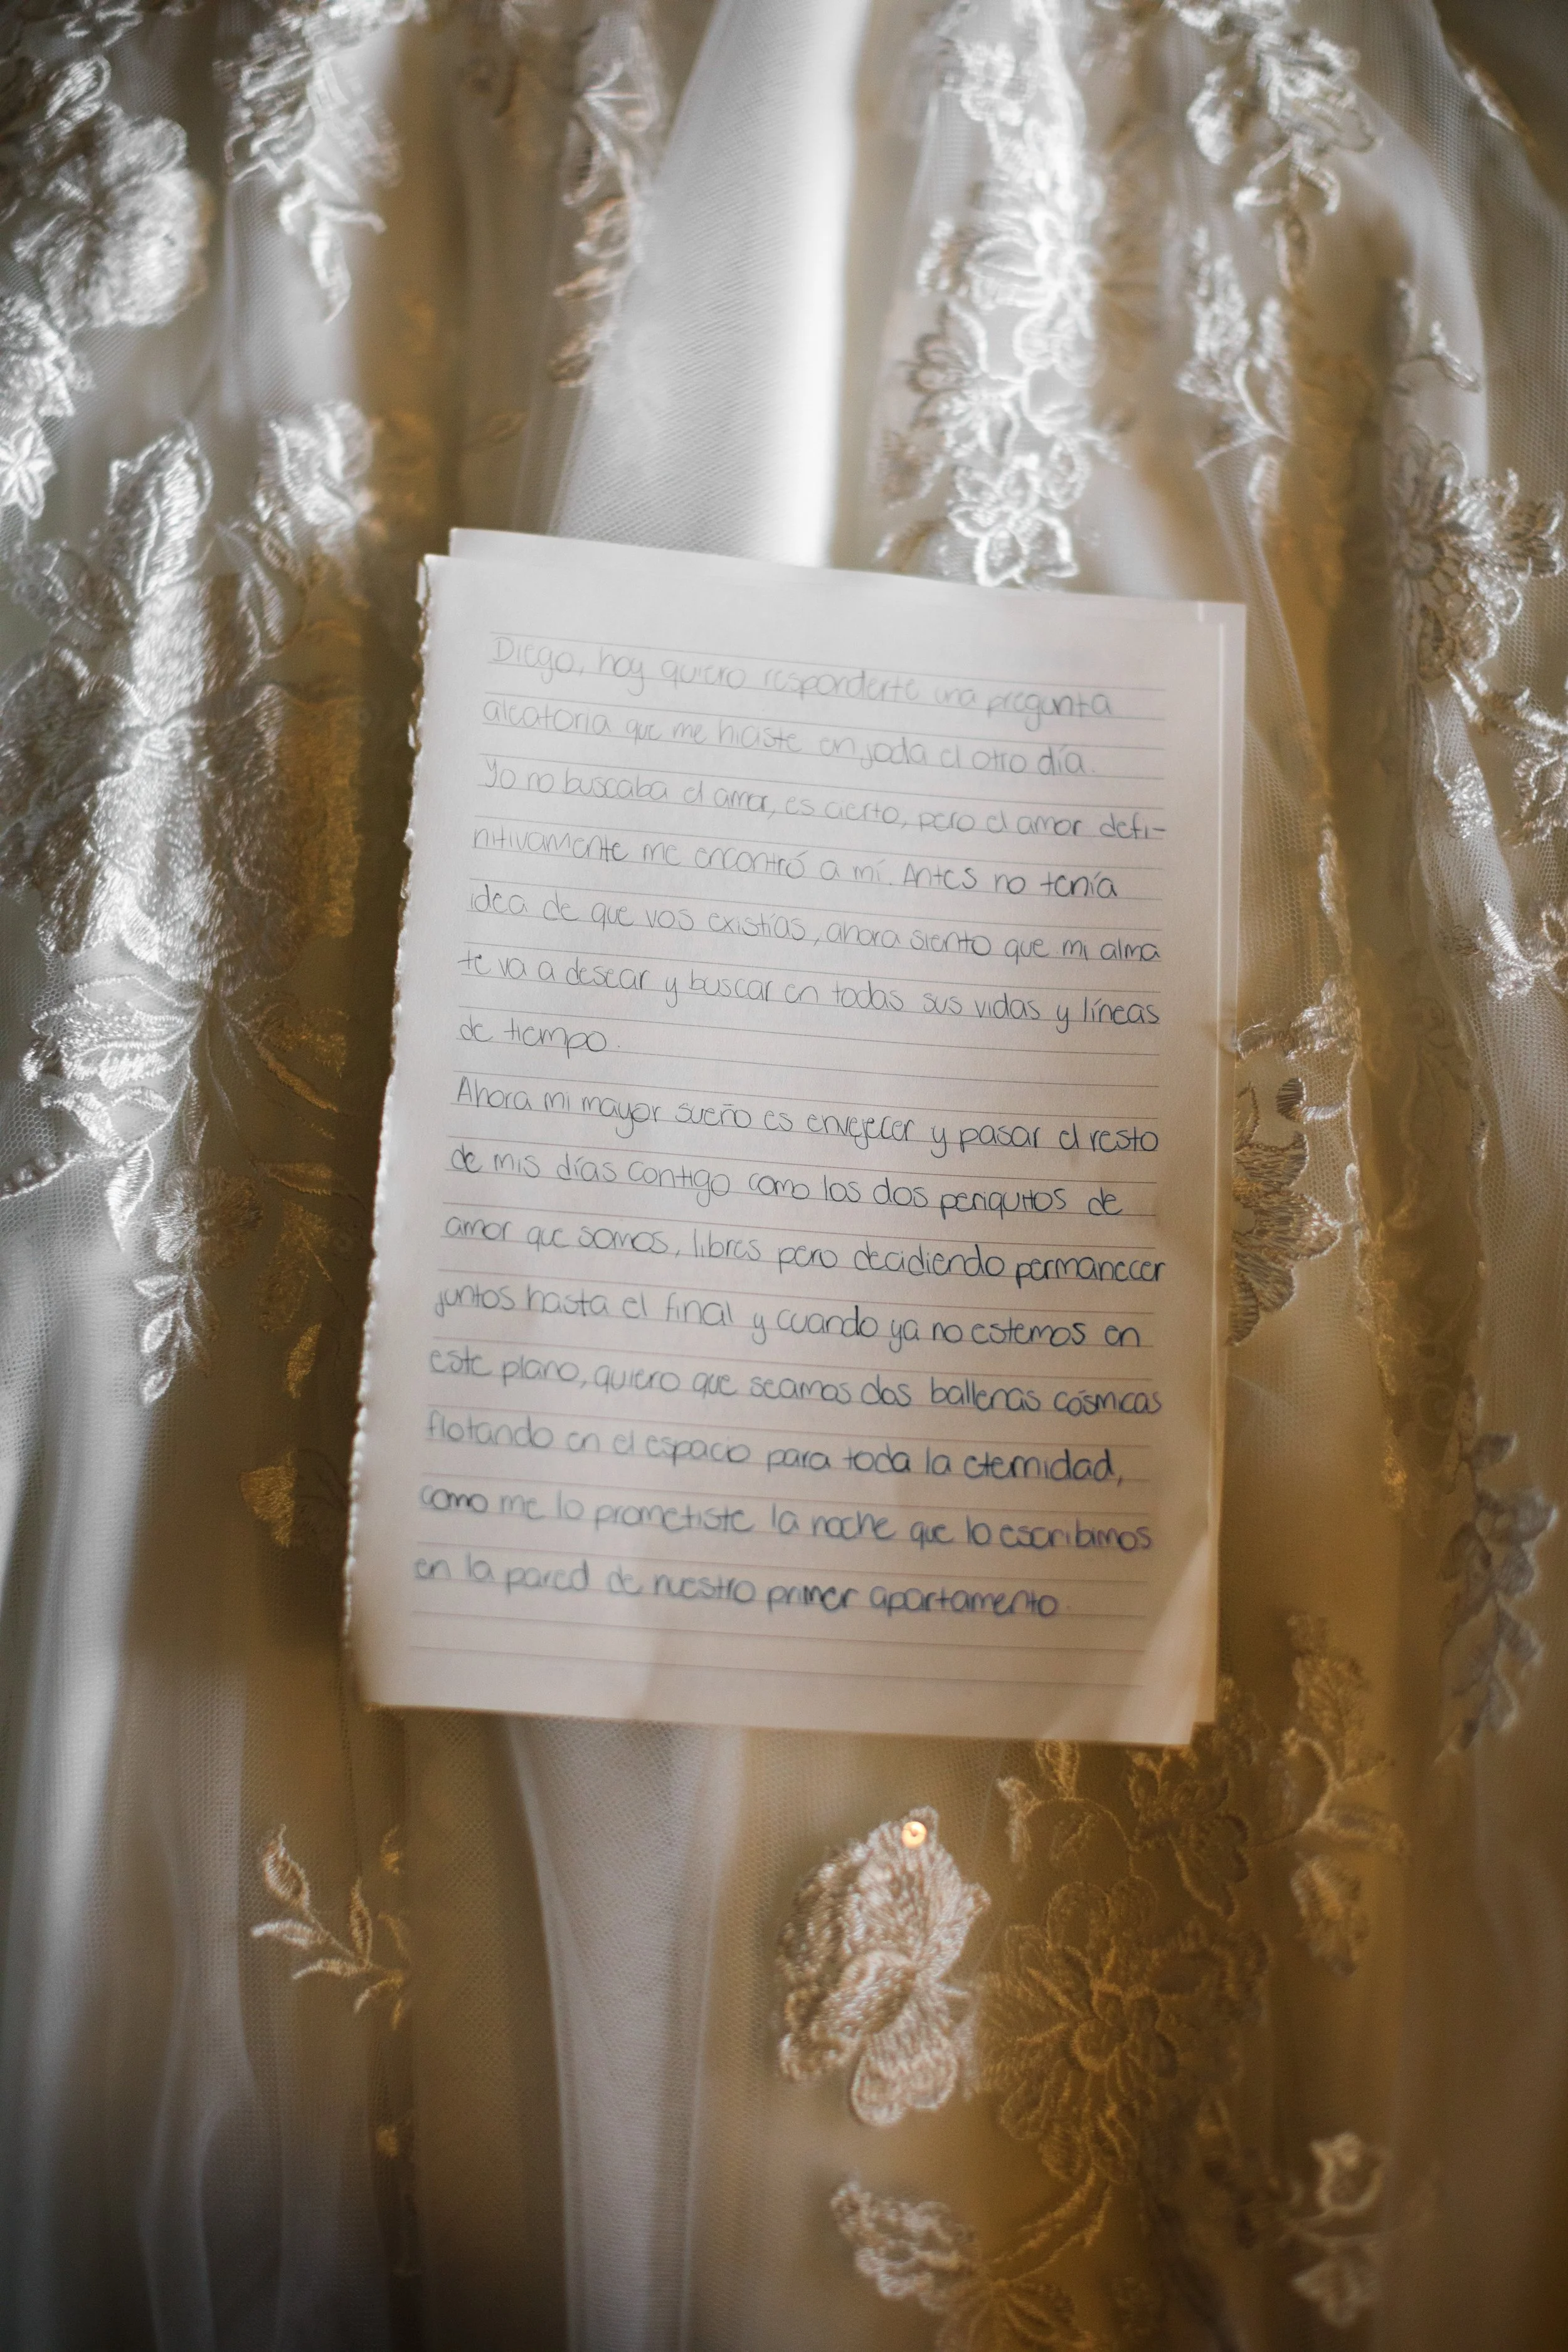 Diego, hoy quiero responderte una pregunta
aleatoria que me hiciste en joda el otro día.
Yo no buscaba el amor, es cierto, pero el amor defi-
nitivamente me encontró a mí. Antes no tenía
idea de que vos existías, ahora siento que mi alma
te va a desear y buscar en todas sus vidas y líneas
de tiempo.
Ahora mi mayor sueño es envejecer y pasar el resto
de mis días contigo como los dos periquitos de
amor que somos, libres pero decidiendo permanecer
juntos hasta el final y cuando ya no estemos en
este plano, quiero que seamos dos ballenas cósmicas
flotando en el espacio para toda la eternidad,
como me lo prometiste la noche que lo escribimos
en la pared de nuestro primer apartamento.